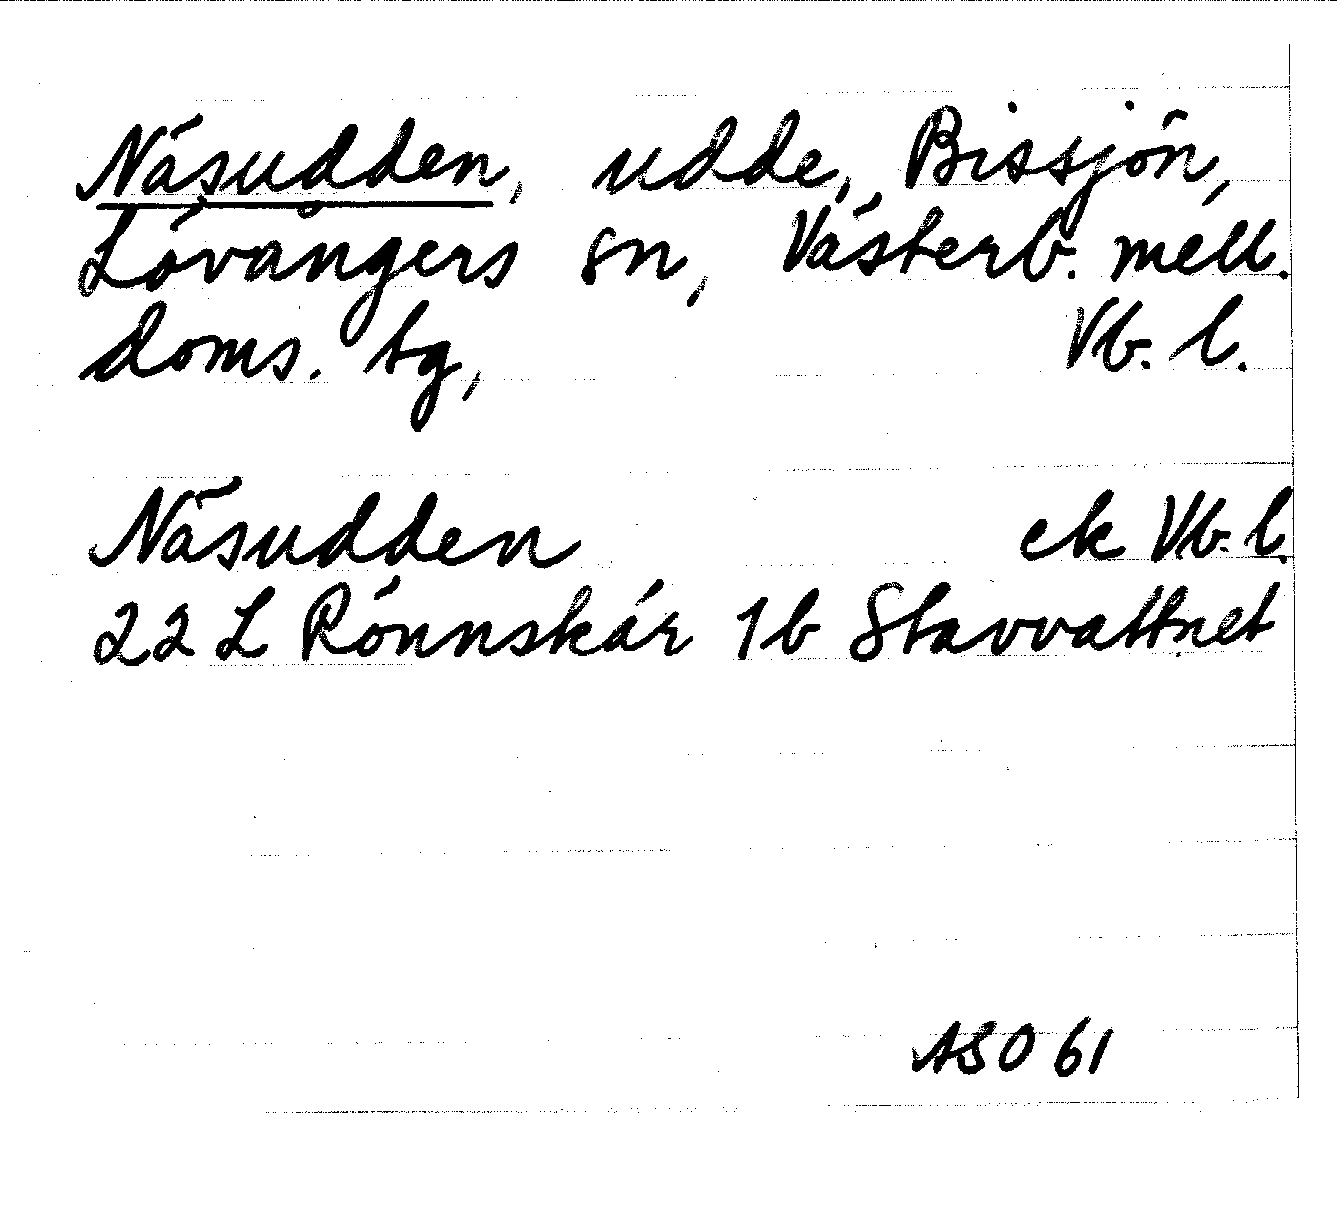 Näsudden, udde, Bissjön,
Lövångers sn, Västerb. mell.
doms. tg, Vb. l.
Näsudden ek Vb. l.
22 L Rönnskär 1b Stavvattnet
ASO 61